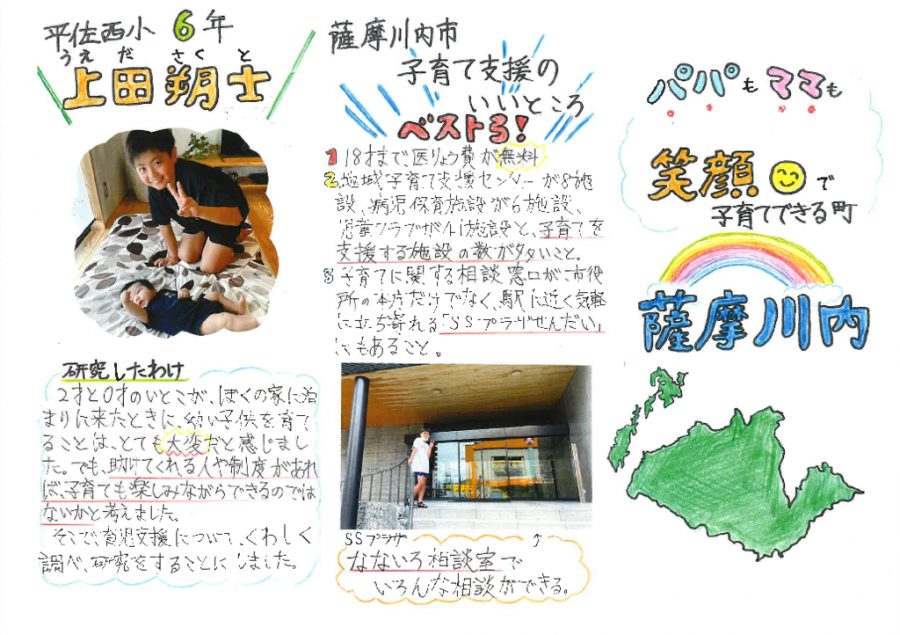 パパもママも
笑顔で
子育てできる町
薩摩川内
薩摩川内市
子育て支援の
いいところ
ベスト3!
1 18才まで医りょう費が無料
2 地域子育て支援センターが8施
設、病児保育施設が6施設、
児童クラブが41施設と、子育てを
支援する施設の数が多いこと。
3 子育てに関する相談窓口が市役
所の本庁だけでなく、駅に近く気軽
に立ち寄れる「SSプラザせんだい」
にもあること。
SSプラザ
なないろ相談室で
いろんな相談ができる。
平佐西小 6年
うえだ さくと
上田 朔士
研究したわけ
2才と0才のいとこが、ぼくの家に泊
まりに来たときに幼い子供を育て
ることは、とても大変だと感じまし
た。でも、助けてくれる人や制度があれ
ば、子育ても楽しみながらできるのでは
ないかと考えました。
そこで育児支援について、くわしく
調べ、研究をすることにしました。